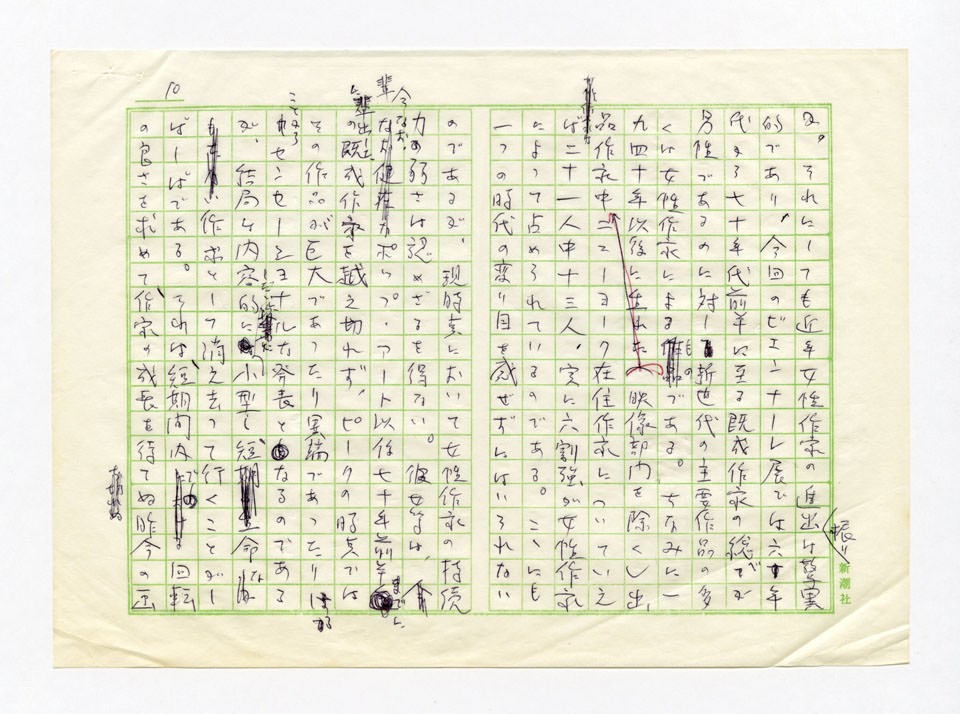 10
及。それにしても近年女性作家の進出は著実
振り
的であり、今回のビエンナーレ展では六十年
代から七十年代前半に至る既成作家の総てが
男性であるのに対し、新世代の主要作品の多
くは女性作家によるものである。ちなみに一
九四十年以後に生れた(映像部内を除く)出
品作家中ニューヨーク在住作家についていえ
ば二十一人中十三人、実に六割強が女性作家
によって占められているのである。ここにも
一つの時代の変り目を感ぜずにはいられない
のであるが、現時点において女性作家の持続
力の弱さは認めざるを得ない。彼女等は、今
なおポップ・アート以後七十年前半までに
輩出の既成作家を越え切れず、ピークの時点では
その作品が巨大であったり異端であったり
センセーショナルな発表となるのである
が、結局は内容的に小型で短命な
作家として消え去って行くことがし
ばしばである。それは、短期間内での回転
の良さを求めて作家の成長を待てぬ昨今の画
新潮社